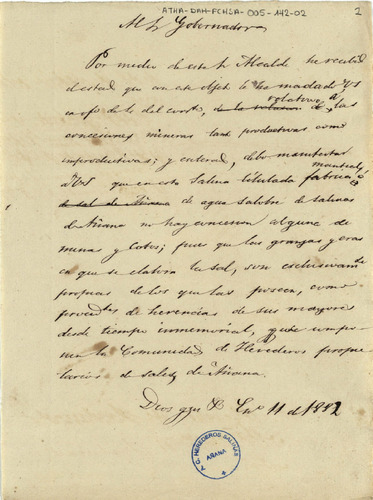 ATHA-DAH-FCHSA-005-142-02
2
Al Sr Gobernador
Por medio de este Sr Alcalde he recibido
el estad que con este objet le ha mandado VS
en ofo de 1o del corrte, de la relacion relativo á
las
concesiones mineras tant productivas como
improductivas; y enterad, debo manifestar
á VS que en esta Salina titulada fabrica
manantial
de sal de Añana de agua salobre de salinas
de Añana no hay concesion alguna de
minas y cotos; pues que las granjas y eras
en que se elabora la sal, son esclusivamte
propias de los que las poseen, como
procedtes de herencias de sus mayores
desde tiempo inmemorial, que compo-
nen la Comunidad de Herederos propie-
tarios de sales de Añana.
Dios gue Eno 11 de 1882
T. C. HEREDEROS SALINAS
AÑANA